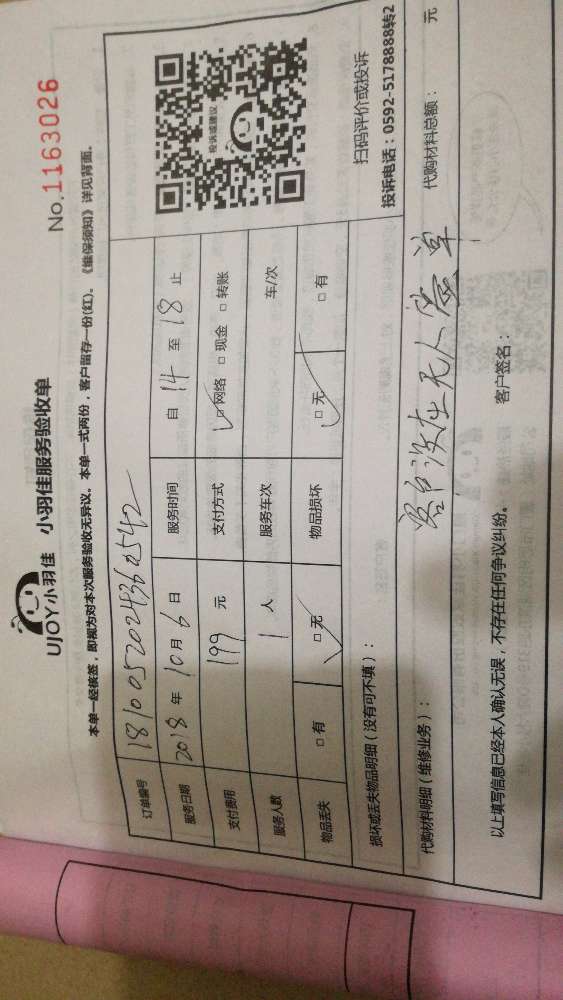 UJOY小羽佳 小羽佳服务验收单
No.1163026
本单一经核签,即视为对本次服务验收无异议。本单一式两份,客户留存一份(红)。《维保须知》详见背面。
订单编号 181005202436542
服务日期 2018年10月6日 服务时间 自14至18止
支付费用 199元 支付方式 □网络 □现金 □转账
服务人数 1人 服务车次 车/次
物品丢失 □有 □无 物品损坏 □无 □有
投诉或建议
扫码评价或投诉
投诉电话:0592-5178888转2
损坏或丢失物品明细(没有可不填):
代购材料明细(维修业务): 代购材料总额: 元
客户没在无人签单
以上填写信息已经本人确认无误,不存在任何争议纠纷。 客户签名: